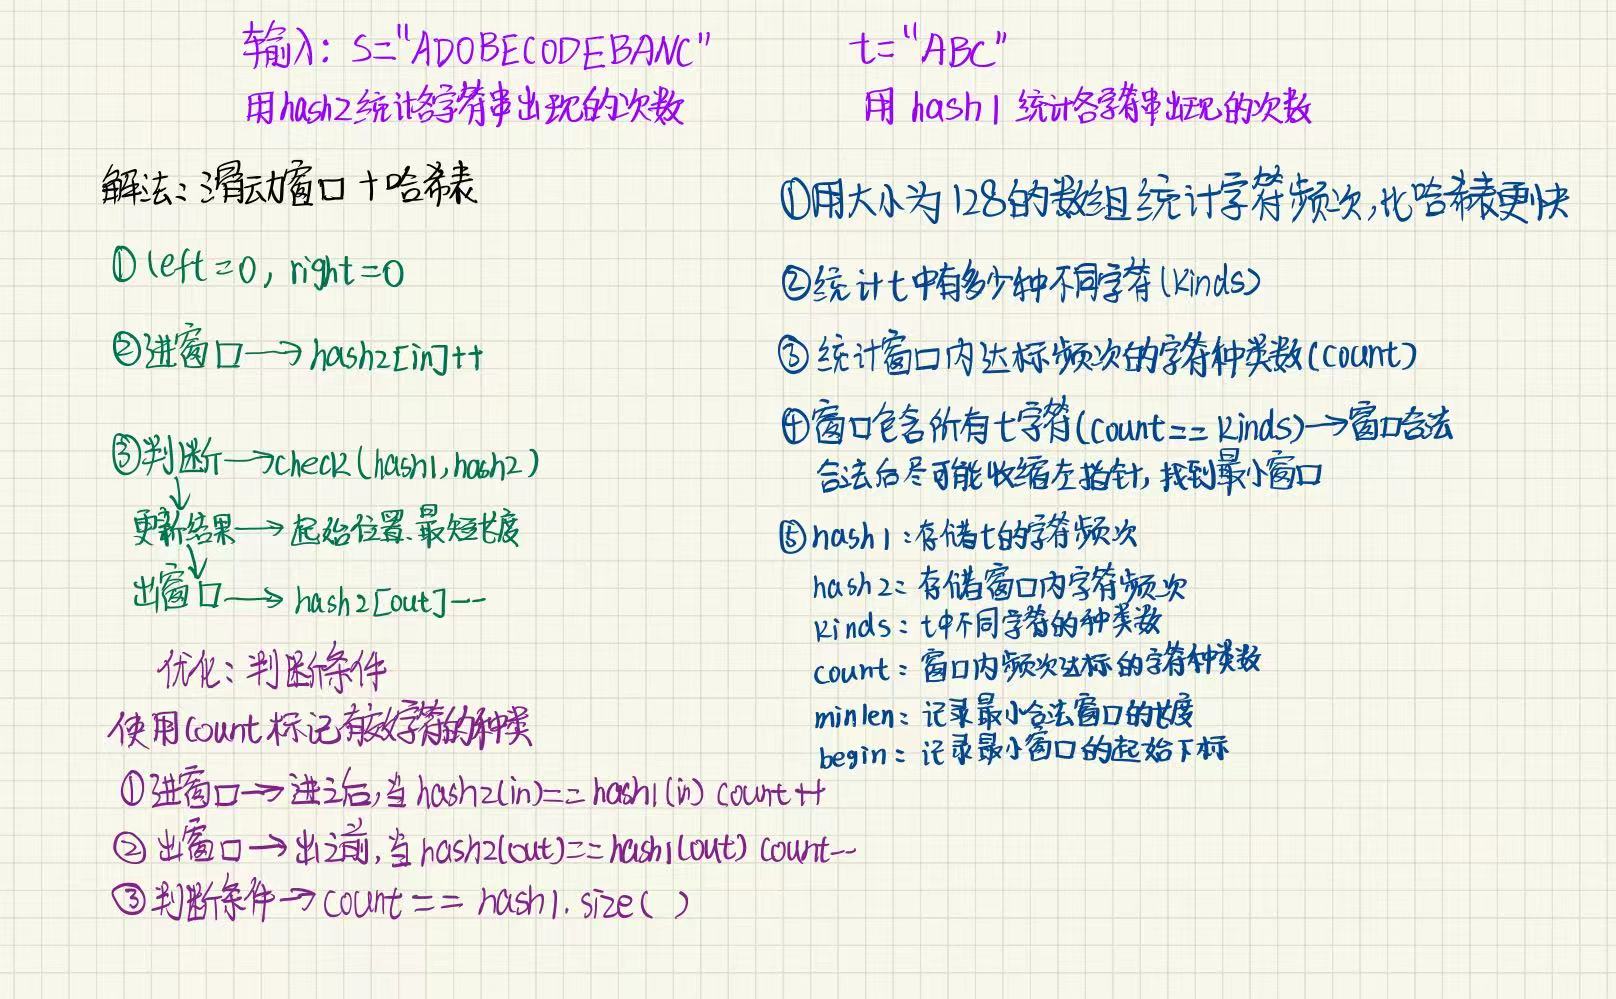 输入: S="ADOBECODEBANC"
t="ABC"
用hash2统计各字符串出现的次数
用 hash1 统计各字符串出现的次数
解法:滑动窗口+哈希表
① left=0, right=0
②进窗口→hash2[in]++
③判断→check(hash1,hash2)
更新结果→起始位置、最短长度
出窗口→hash2[out]--
优化:判断条件
使用count标记有效字符的种类
①进窗口→进之后,当hash2(in)==hash1(in) count++
②出窗口→出之前,当hash2(out)==hash1(out) count--
③判断条件→count==hash1.size( )
①用大小为128的数组统计字符频次,比哈希表更快
②统计t中有多少种不同字符(kinds)
③统计窗口内达标频次的字符种类数(count)
④窗口包含所有t字符(count==kinds)→窗口合法
合法后尽可能收缩左指针,找到最小窗口
⑤hash1:存储t的字符频次
hash2:存储窗口内字符频次
kinds:t中不同字符的种类数
count:窗口内频次达标的字符种类数
minlen:记录最小合法窗口的长度
begin:记录最小窗口的起始下标